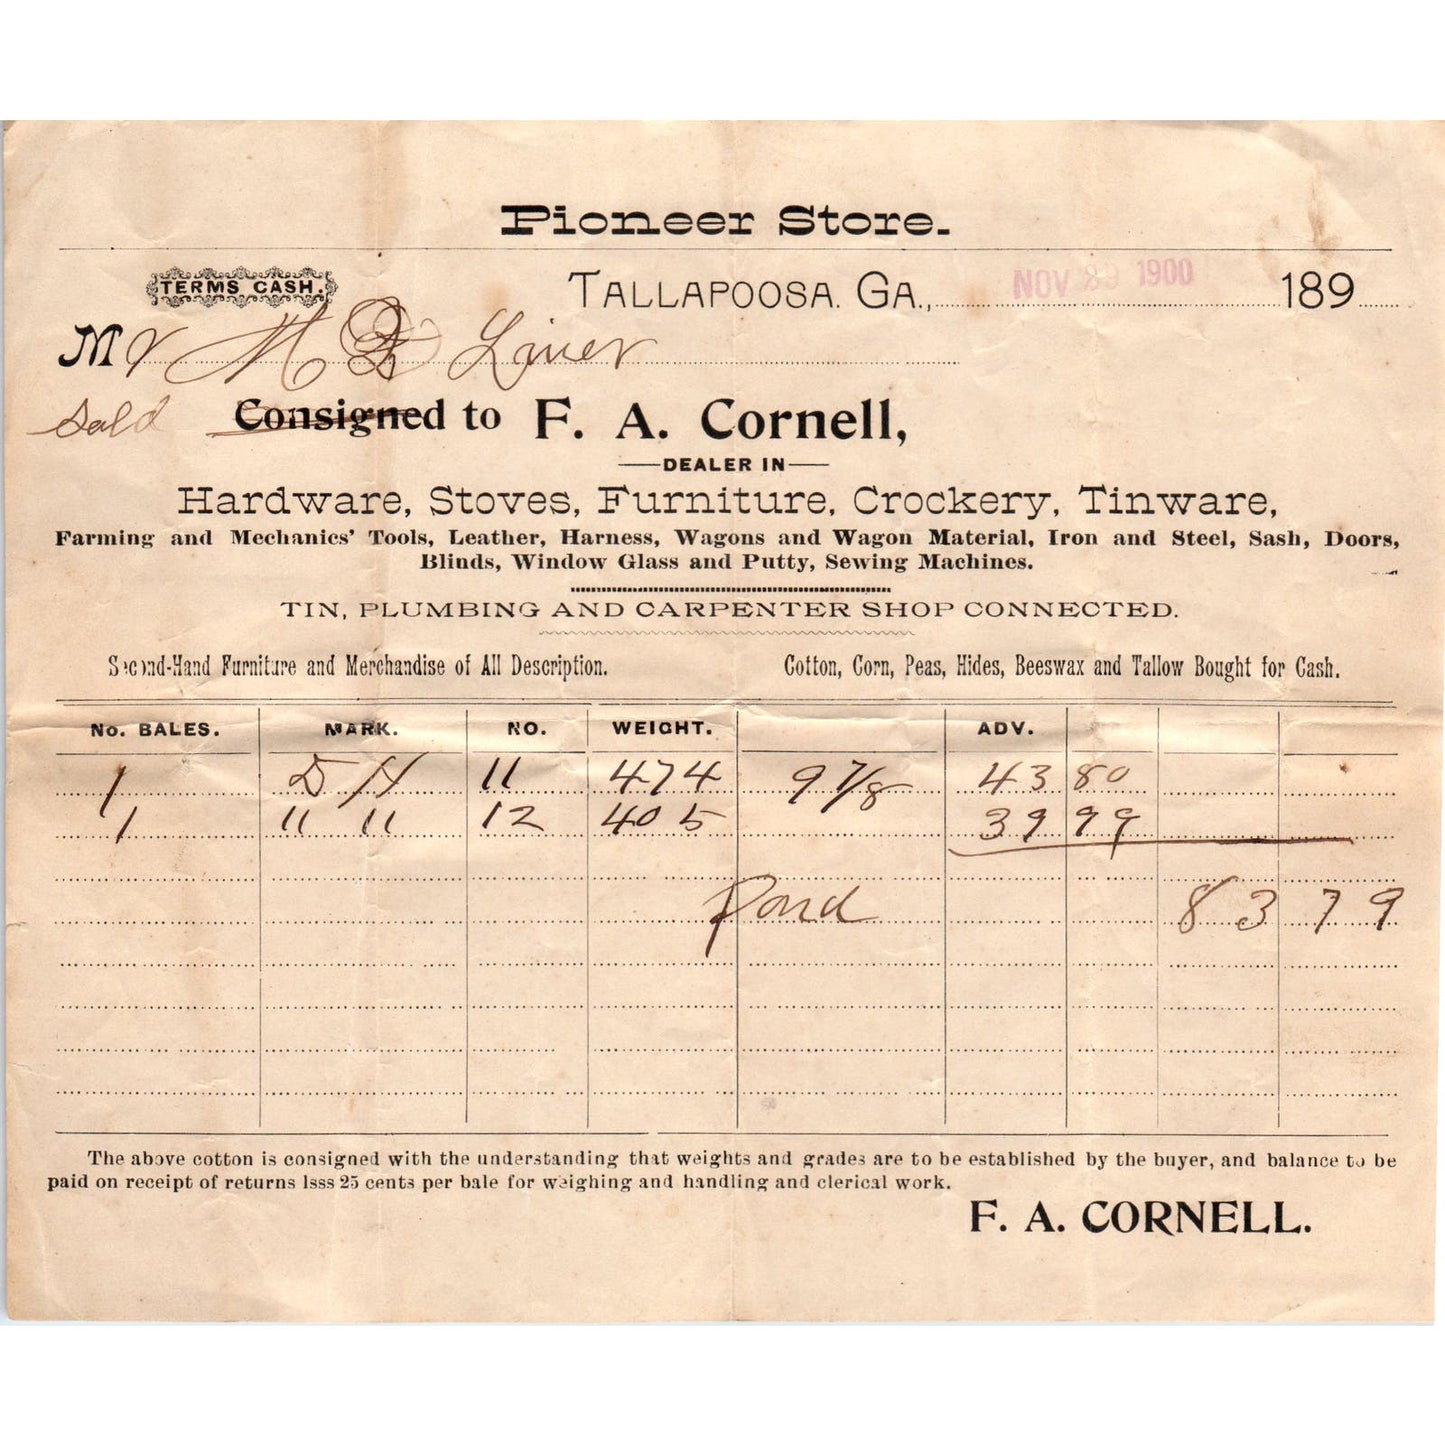 Pioneer Store.
TERMS CASH.
TALLAPOOSA. GA., NOV 1900 189
Mr H Liner
Sold Consigned to F. A. Cornell,
DEALER IN
Hardware, Stoves, Furniture, Crockery, Tinware,
Farming and Mechanics' Tools, Leather, Harness, Wagons and Wagon Material, Iron and Steel, Sash, Doors,
Blinds, Window Glass and Putty, Sewing Machines.
TIN, PLUMBING AND CARPENTER SHOP CONNECTED.
Second-Hand Furniture and Merchandise of All Description. Cotton, Corn, Peas, Hides, Beeswax and Tallow Bought for Cash.
No. BALES. MARK. NO. WEIGHT. ADV.
1 D H 11 474 9 7/8 43 80
1 11 11 12 405 39 99
83 79
The above cotton is consigned with the understanding that weights and grades are to be established by the buyer, and balance to be
paid on receipt of returns lsss 25 cents per bale for weighing and handling and clerical work.
F. A. CORNELL.